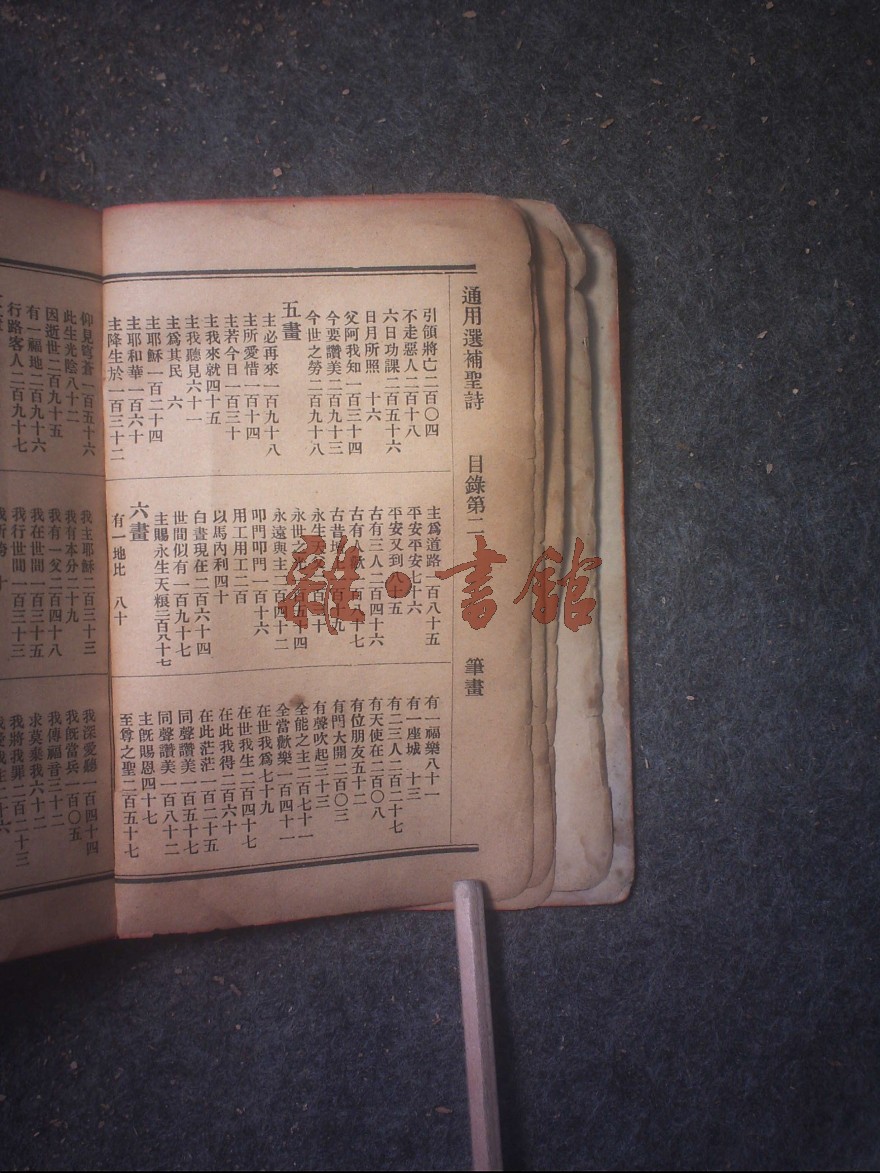 通用選補聖詩 目錄第二 筆畫
引領將亡二百〇四
不走惡人二百十八
六日功課二百五十六
日月所照 十六
父阿我知一百三十四
今要讚美二百九十三
今世之勞二百九十八
五畫
主必再來一百九十八
主所愛惜一百十四
主若今日一百三十
主我來就四十五
主我聽見六十一
主為其民 六
主耶穌一百二十四
主耶和華一百六十
主降生於一百三十二
主為道路一百八十五
平安平安七十六
平安又到八十五
古有三人二百四十六
古有人歌一百八十七
永遠與主二百四十二
叩門叩門一百十六
用工用工二百
以馬內利四十
白晝現在二百六十四
世間似有一百九十七
主賜永生天糧二百八十七
六畫
有一地比 八十
有一福樂八十一
有一座城 十三
有二三人二百二十七
有天使在二百〇八
有位朋友五十二
有門大開二百〇三
有聲吹起三十三
全能之主二百七十一
全當歡樂一百四十一
在世我為七十九
在世我生二百四十七
在此我得二百六十
在此茫茫一百二十五
同聲讚美一百五十七
同聲讚美一百八十二
主既賜恩四十七
至尊之聖二百五十七
仰見穹蒼一百五十六
此生光陰八十二
因逝世二百九十五
有一福地二百九十六
行路客人二百九十七
我主耶穌二百三十三
我有本分二十九
我有一父二百四十八
我在世間一百三十五
我行世間一百三十三
我深愛聽一百四十四
我既當兵一百〇五
我傳福音三十二
求莫棄我六十二
我將我罪二百二十三